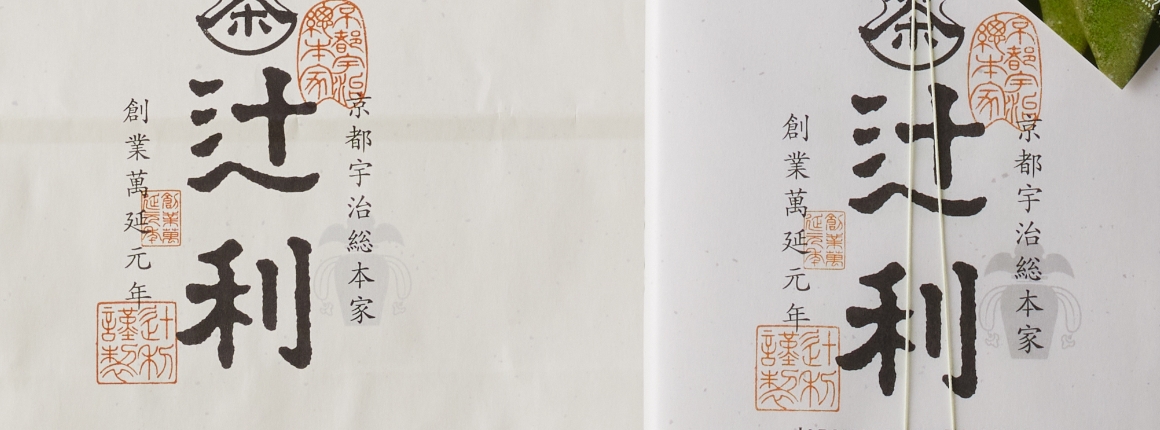 茶
京都宇治
總本家
京都宇治総本家
辻利
創業萬延元年
創業萬
延元年
辻利
謹製
茶
京都宇治
總本家
京都宇治総本家
辻利
創業萬延元年
創業萬
延元年
辻利
謹製